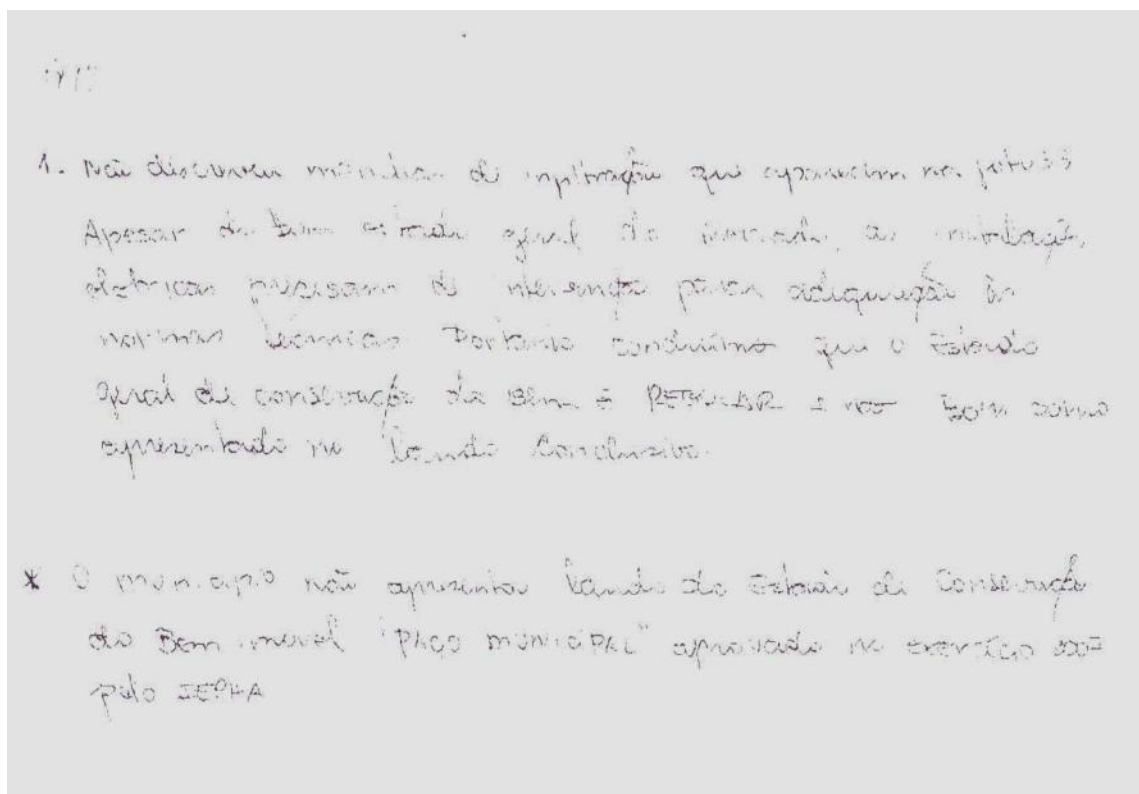 1. Não descreveu manchas de infiltração que aparecem na foto 33
Apesar do bom estado geral do mercado, as instalações
elétricas precisam de intervenção para adequação às
normas técnicas Portanto concluimos que o Estado
geral de conservação do Bem é REGULAR e não Bom como
apresentado no Laudo Conclusivo.
* O município não apresentou Laudo do Estado de Conservação
do Bem imovel "PAÇO MUNICIPAL" aprovado no exercício
pelo IEPHA